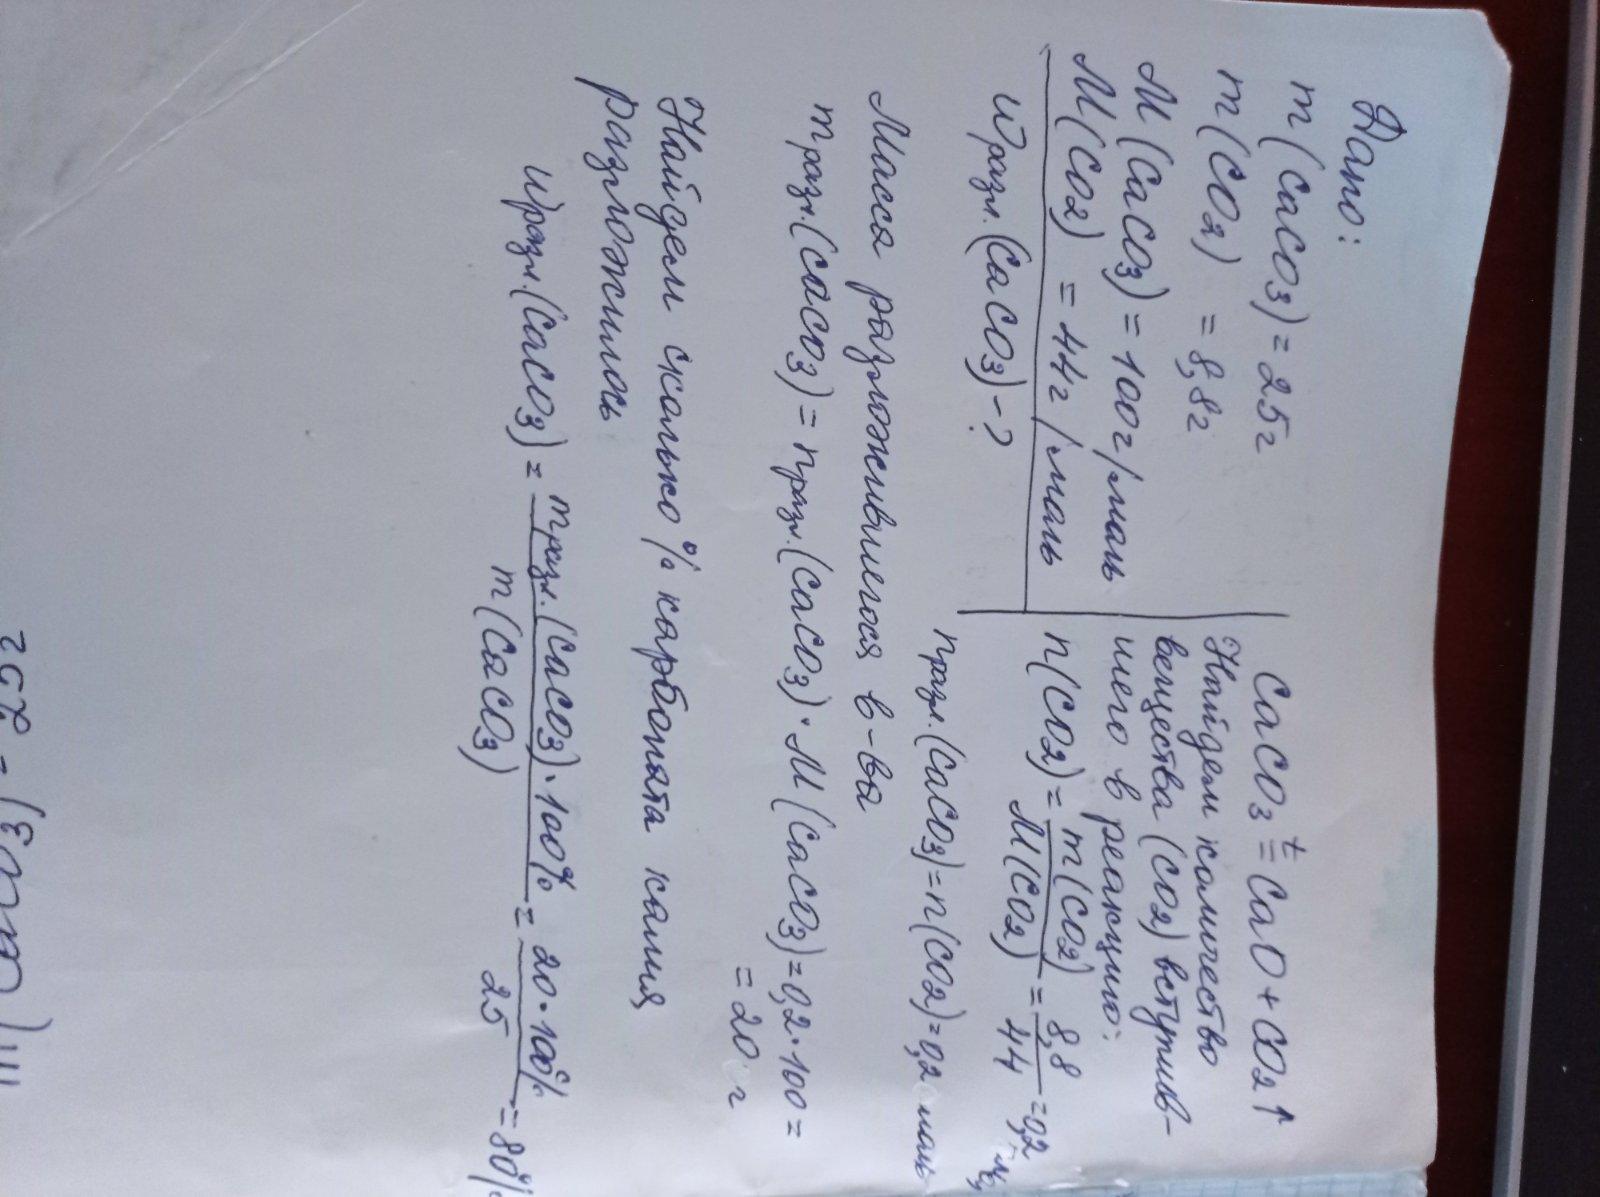 Дано:
m(CaCO3) = 25г
m(CO2) = 8,8г
M(CaCO3) = 100г/моль
M(CO2) = 44г/моль
Wразл.(CaCO3) - ?
CaCO3 t= CaO + CO2↑
Найдем количество
вещества (CO2) вступив-
шего в реакцию:
n(CO2) = m(CO2)/M(CO2) = 8,8/44 = 0,2
nразл.(CaCO3) = n(CO2) = 0,2 моль
Масса разложившегося в-ва
mразл.(CaCO3) = nразл.(CaCO3) · M(CaCO3) = 0,2 · 100 =
= 20 г
Найдем сколько % карбоната калия
разложилось
Wразл.(CaCO3) = mразл.(CaCO3) · 100%/m(CaCO3) = 20 · 100%/25 = 80%